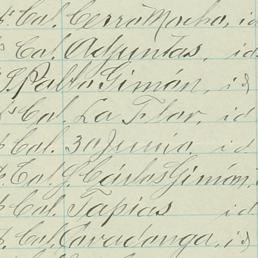 Cal. Cerro Mocho, id
Cal. Adjuntas, id
Pablo Gimón, id
Cal. La Flor, id
Cal. 30 Junio, id
Cal. Cárlos Gimón,
Cal. Tapias id
Cal. Covadonga, id